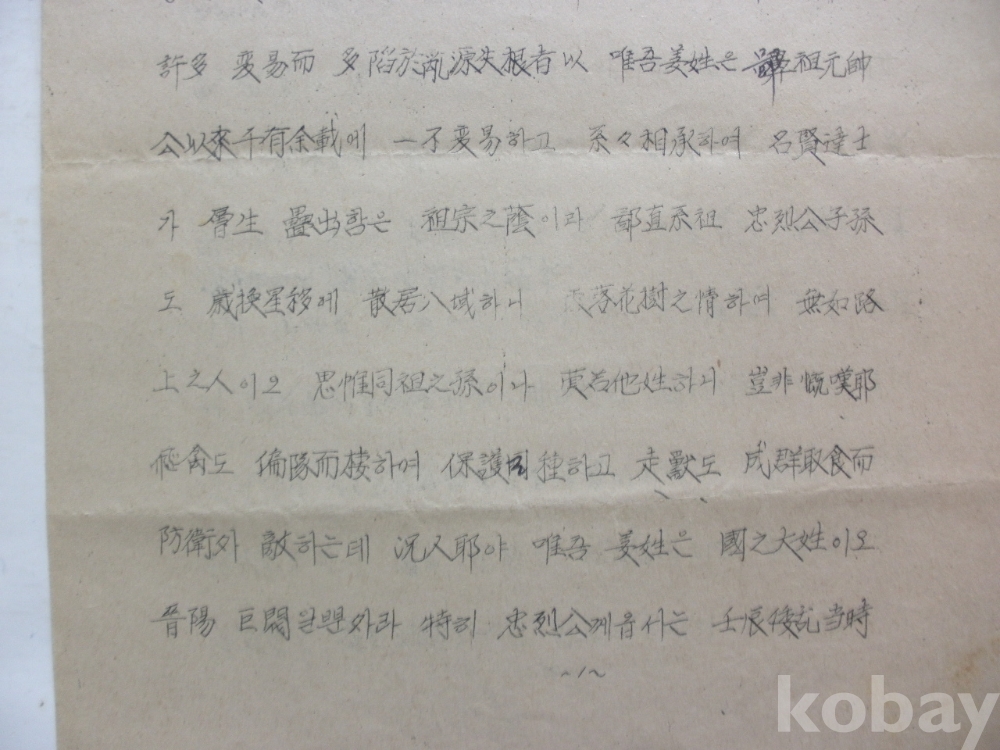 許多 変易而 多陷於乱源失根者以 唯吾姜姓은 鼻祖元帥
公以來千有余載에 一不変易하고 系々相承하여 名賢達士
가 層生 疊出함은 祖宗之蔭이라 鄙直系祖 忠烈公子孫
도 歲換星移에 散居八域하니 落花樹之情하여 無如路
上之人이오 思惟同祖之孫이나 莫若他姓하니 豈非慨嘆耶
飛禽도 偏隊而棲하여 保護同種하고 走獸도 成群取食而
防衛外 敵하는데 况人耶아 唯吾 姜姓은 國之大姓이오
晉陽 巨閥일뿐外라 特히 忠烈公께옵서는 壬辰倭乱当時
~1~
kobay